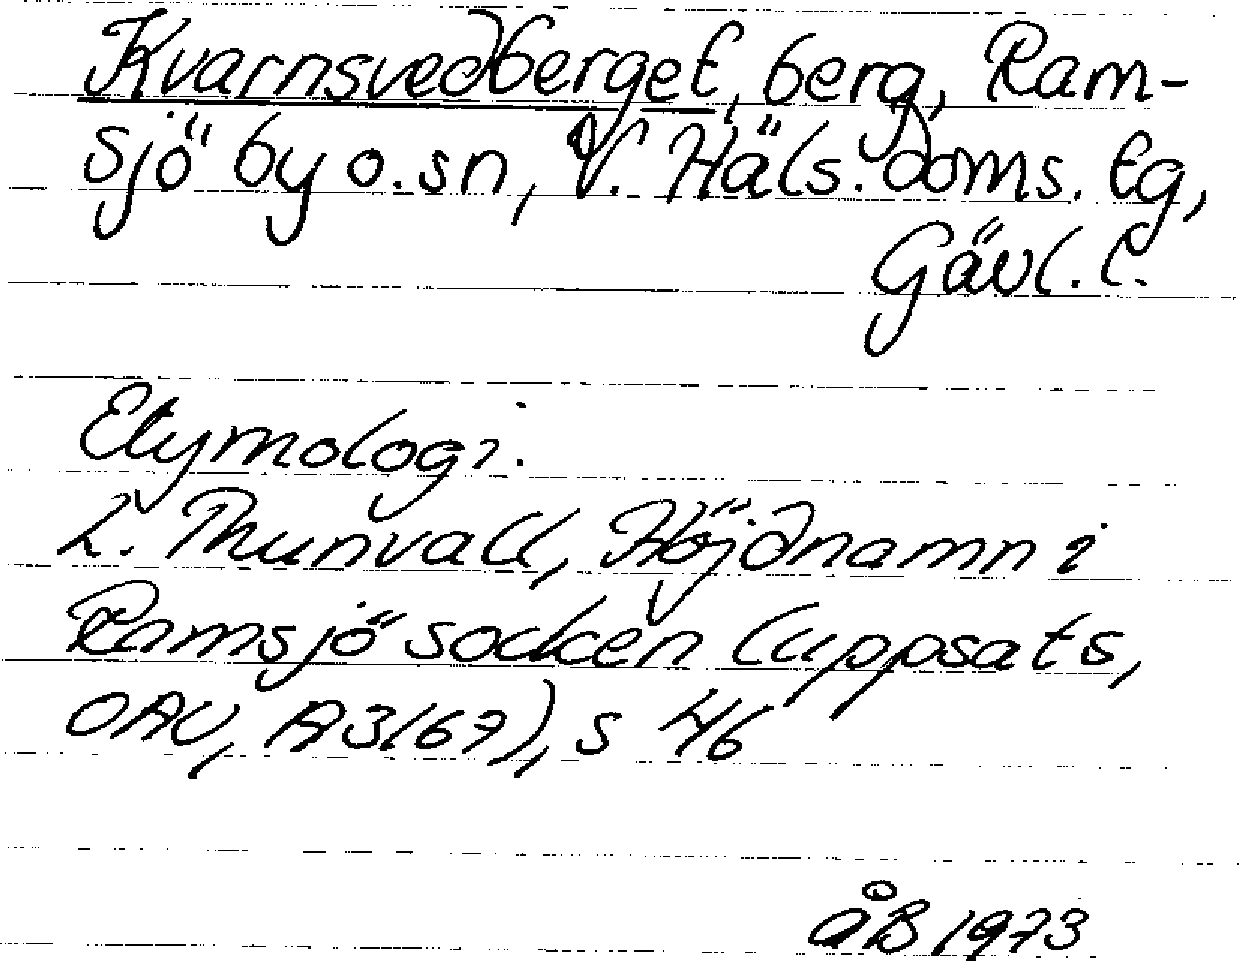 Kvarnsvedberget, berg, Ram-
sjö by o. sn, V. Häls. doms. tg,
Gävl. l.
Etymologi.
L. Thunvall, Höjdnamn i
Ramsjö socken (uppsats,
OAU, A3/67), s 46
ÅB 1973